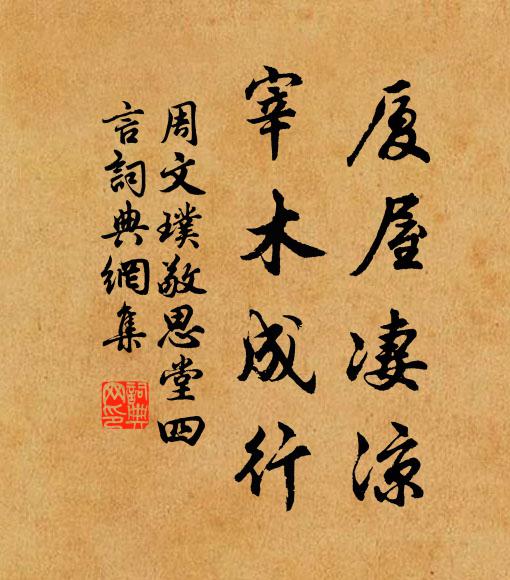 厦屋凄凉
宰木成行
周文璞敬思堂四
言詞典網集
詞典
网印